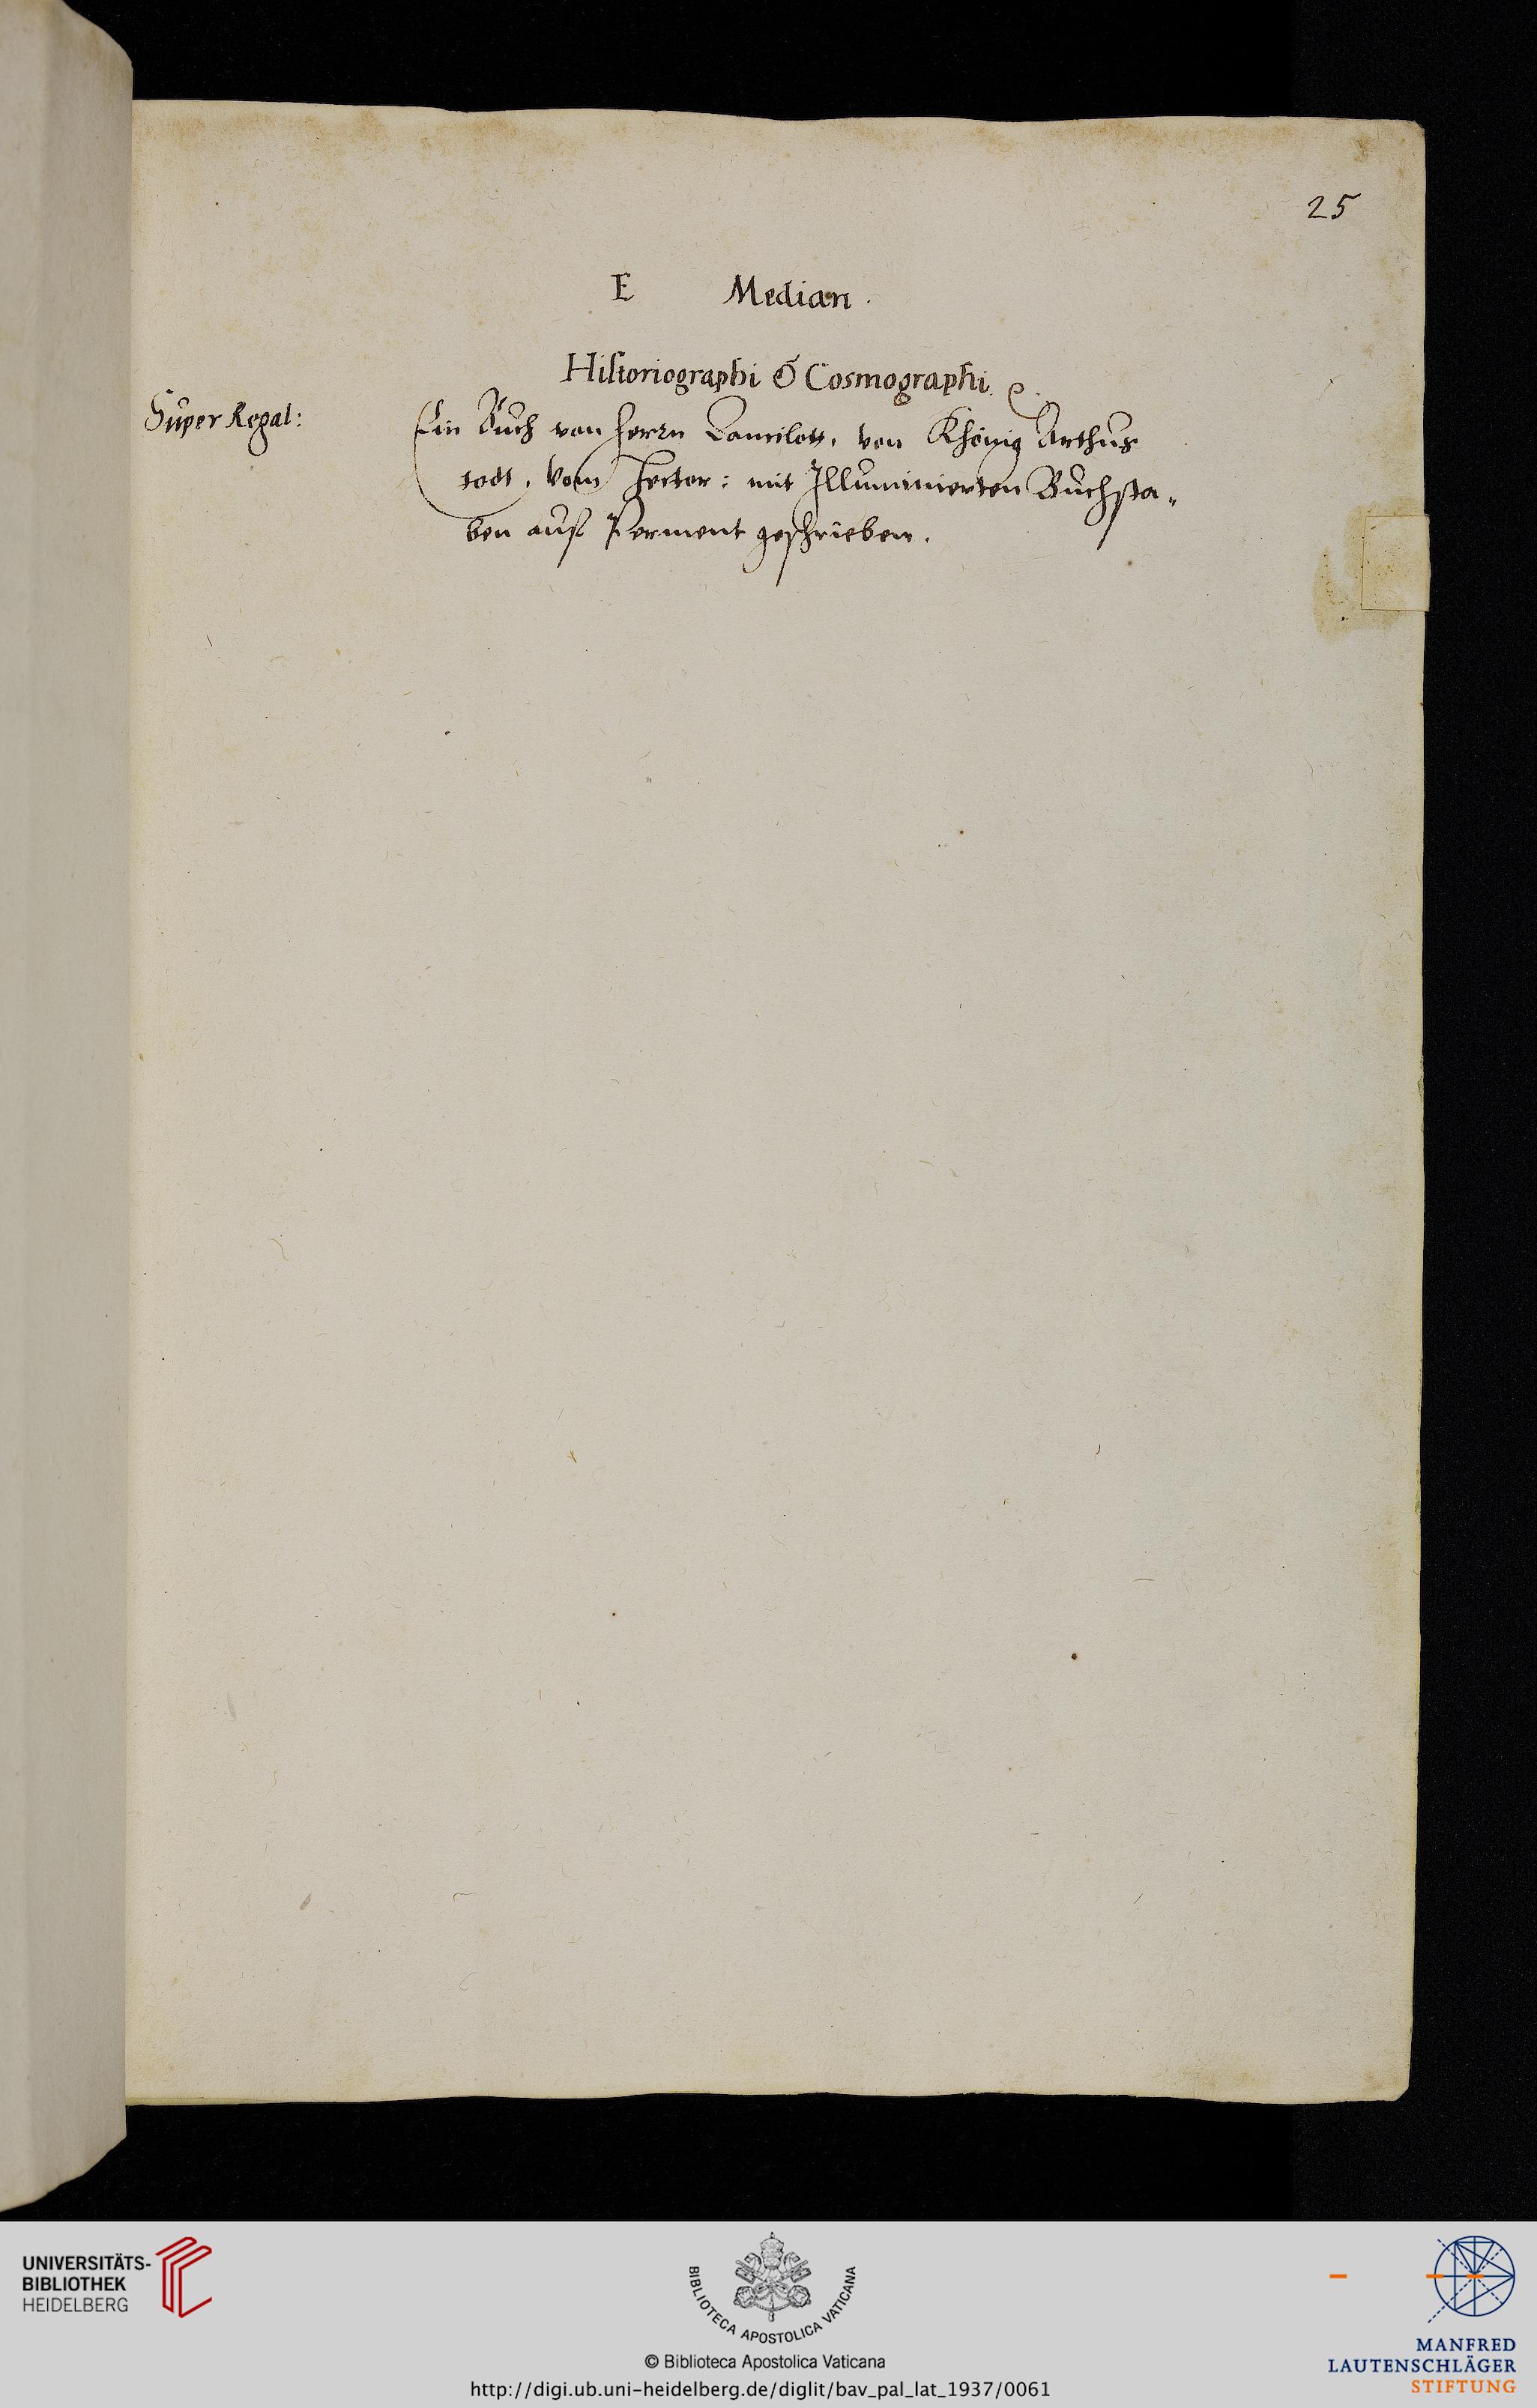 25
E Median.
Historiographi & Cosmographi.
Super Regal:
Ein Buch von herrn Lancilott, von Khönig Arthus
todt, vom Hector: mit Illuminierten Buchsta-
ben auf Perment geschrieben.
UNIVERSITÄTS-
BIBLIOTHEK
HEIDELBERG
BIBLIOTECA APOSTOLICA VATICANA
© Biblioteca Apostolica Vaticana
http://digi.ub.uni-heidelberg.de/diglit/bav_pal_lat_1937/0061
MANFRED
LAUTENSCHLÄGER
STIFTUNG